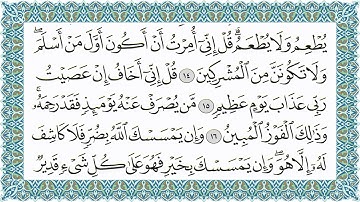 يُطْعِمُ وَلَا يُطْعَمُ ۗ قُلْ إِنِّىٓ أُمِرْتُ أَنْ أَكُونَ أَوَّلَ مَنْ أَسْلَمَ ۖ
وَلَا تَكُونَنَّ مِنَ ٱلْمُشْرِكِينَ ١٤ قُلْ إِنِّىٓ أَخَافُ إِنْ عَصَيْتُ
رَبِّى عَذَابَ يَوْمٍ عَظِيمٍ ١٥ مَّن يُصْرَفْ عَنْهُ يَوْمَئِذٍ فَقَدْ رَحِمَهُۥ ۚ
وَذَٰلِكَ ٱلْفَوْزُ ٱلْمُبِينُ ١٦ وَإِن يَمْسَسْكَ ٱللَّهُ بِضُرٍّ فَلَا كَاشِفَ
لَهُۥٓ إِلَّا هُوَ ۖ وَإِن يَمْسَسْكَ بِخَيْرٍ فَهُوَ عَلَىٰ كُلِّ شَىْءٍ قَدِيرٌ